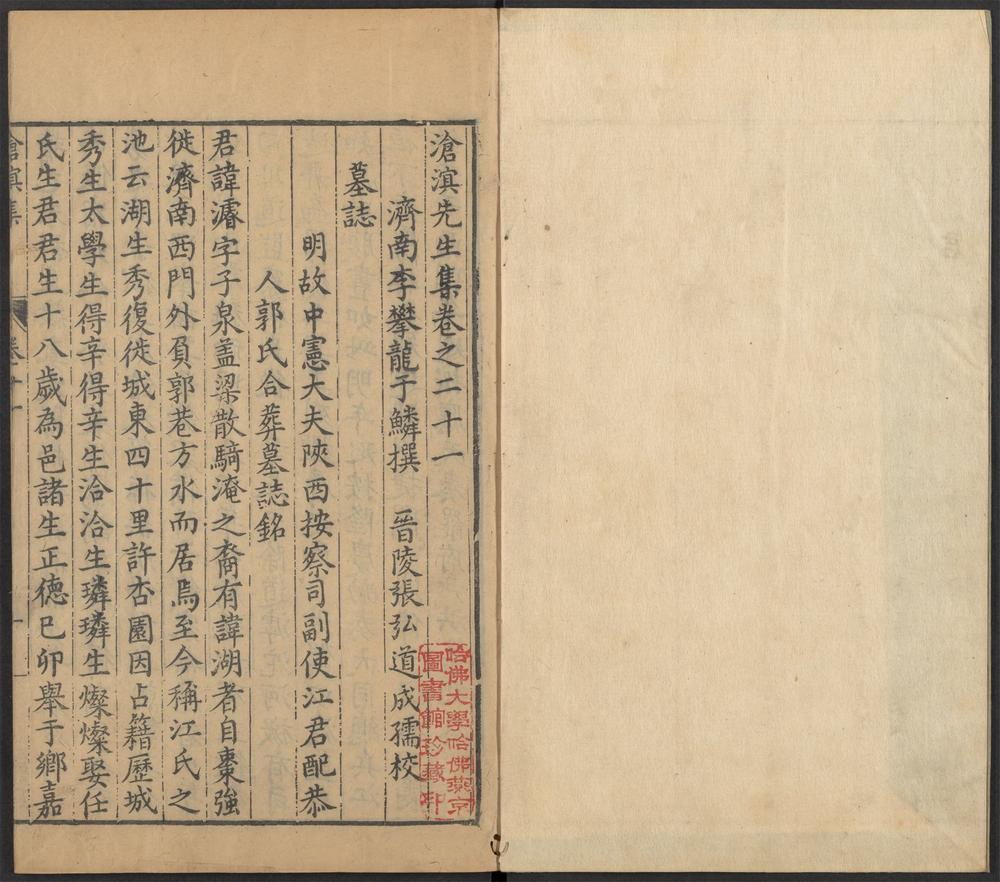 滄溟先生集卷之二十一
濟南李攀龍于鱗撰　晉陵張弘道成孺校
墓誌
明故中憲大夫陝西按察司副使江君配恭
人郭氏合葬墓誌銘
君諱濬字子泉盖梁散騎淹之裔有諱湖者自棗強
徙濟南西門外負郭巷方水而居焉至今稱江氏之
池云湖生秀復徙城東四十里許杏園因占籍歷城
秀生太學生得辛得辛生洽洽生璘璘生燦燦娶任
氏生君君生十八歲為邑諸生正德巳卯舉于鄉嘉
滄溟集
卷二十一
一
哈佛大學哈佛燕京
圖書館珍藏印